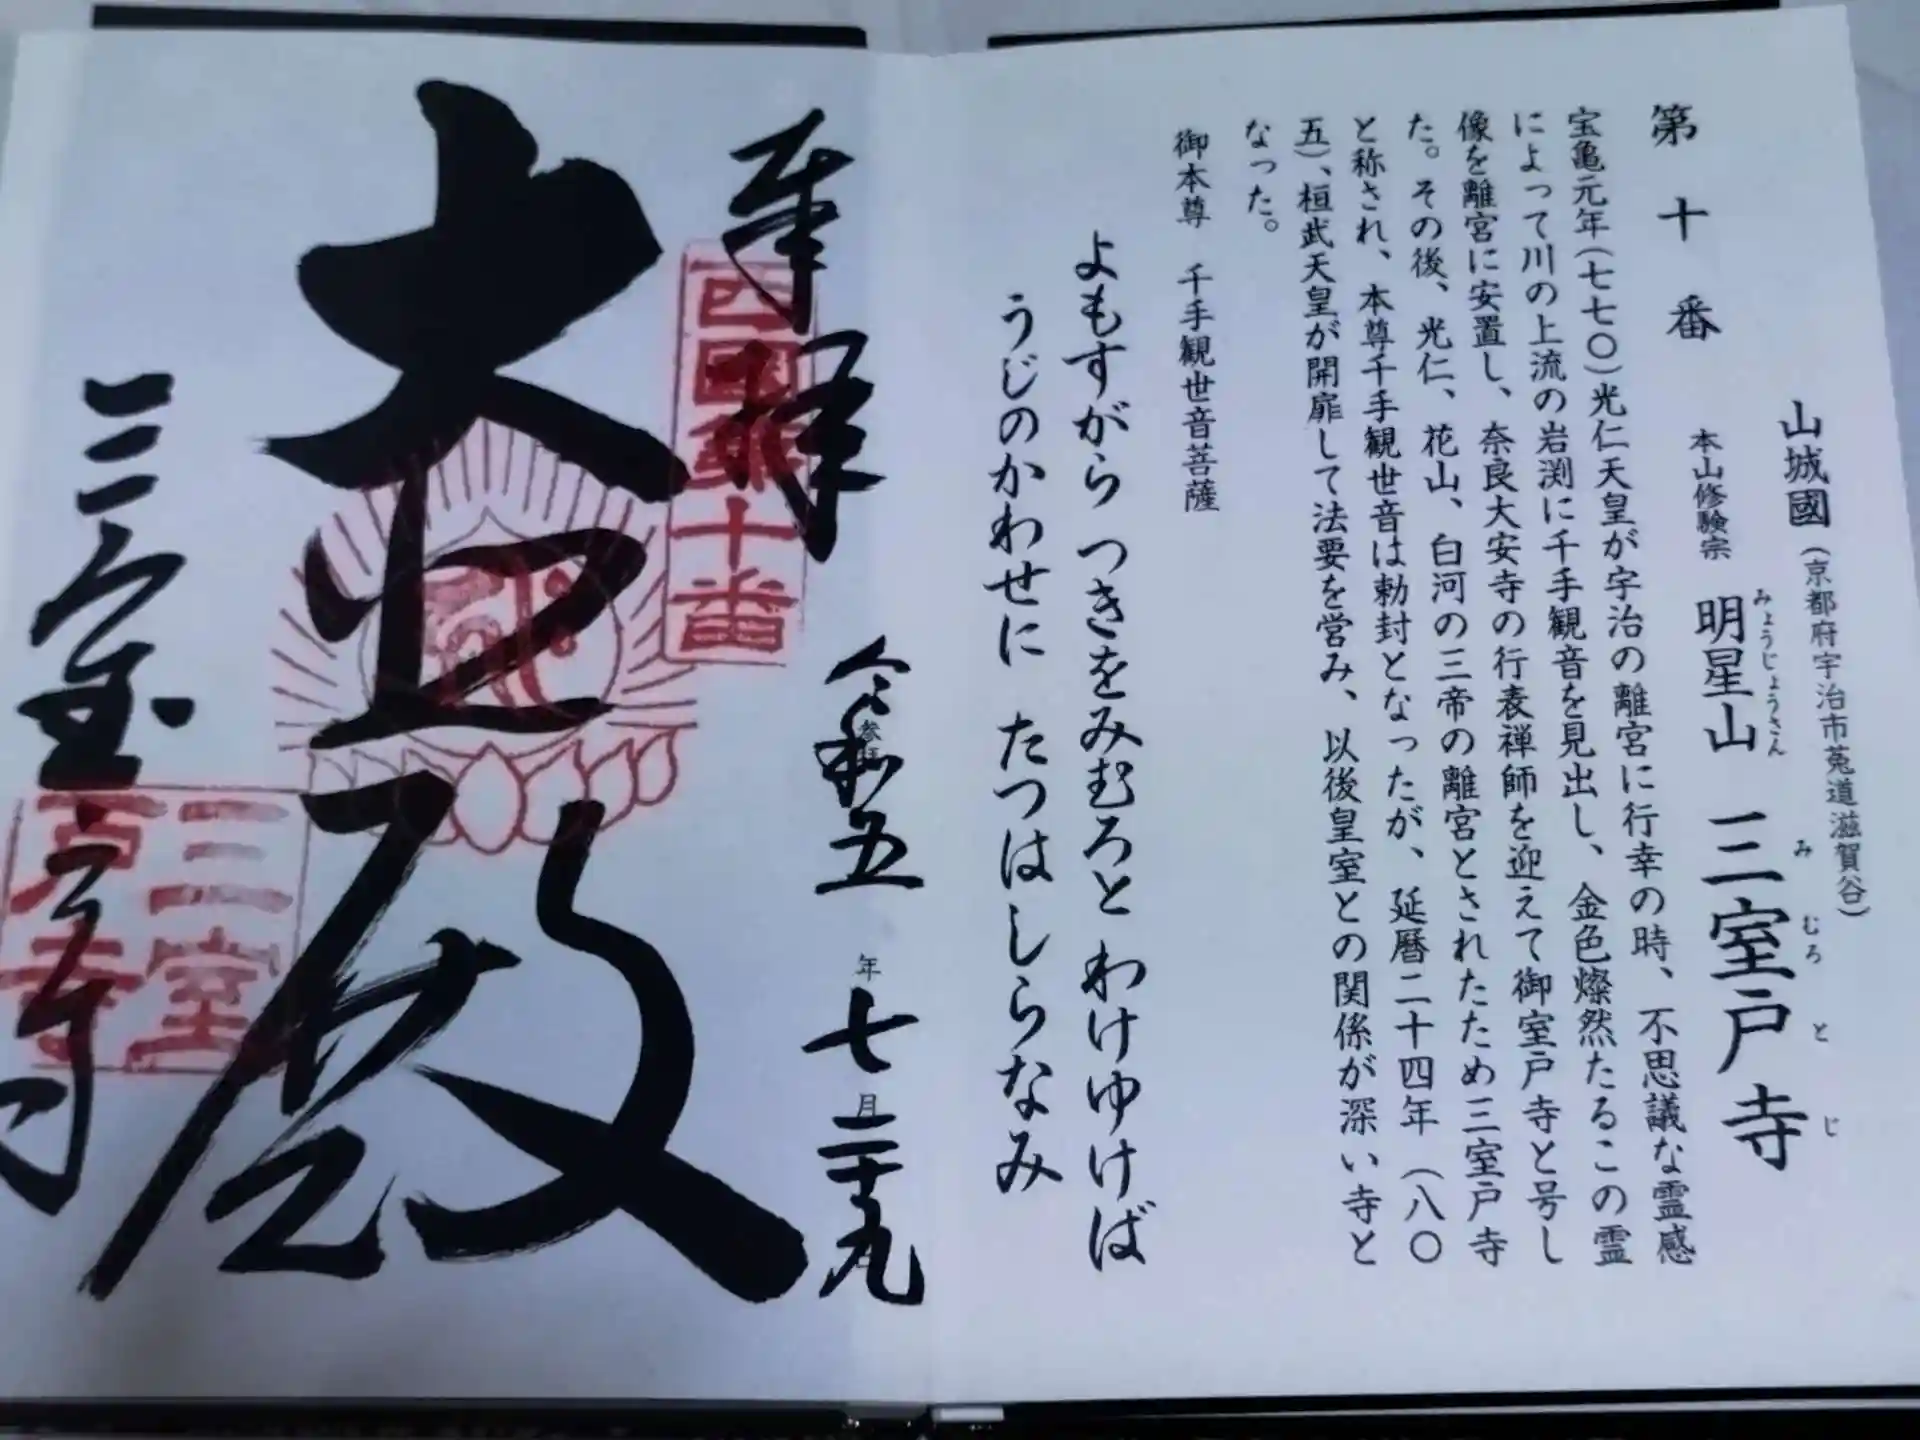 山城國(京都府宇治市菟道滋賀谷)
第十番 本山修験宗 明星山 三室戸寺
みょうじょうさん み むろ と じ
宝亀元年(七七〇)光仁天皇が宇治の離宮に行幸の時、不思議な霊感
によって川の上流の岩渕に千手観音を見出し、金色燦然たるこの霊
像を離宮に安置し、奈良大安寺の行表禅師を迎えて御室戸寺と号し
た。その後、光仁、花山、白河の三帝の離宮とされたため三室戸寺
と称され、本尊千手観世音は勅封となったが、延暦二十四年(八〇
五)、桓武天皇が開扉して法要を営み、以後皇室との関係が深い寺と
なった。
御本尊 千手観世音菩薩
よもすがら つきをみむろと わけゆけば
うじのかわせに たつはしらなみ
奉拝
西國第十番
令和五年七月二十九
大悲殿
三室戸寺
三室
戸寺